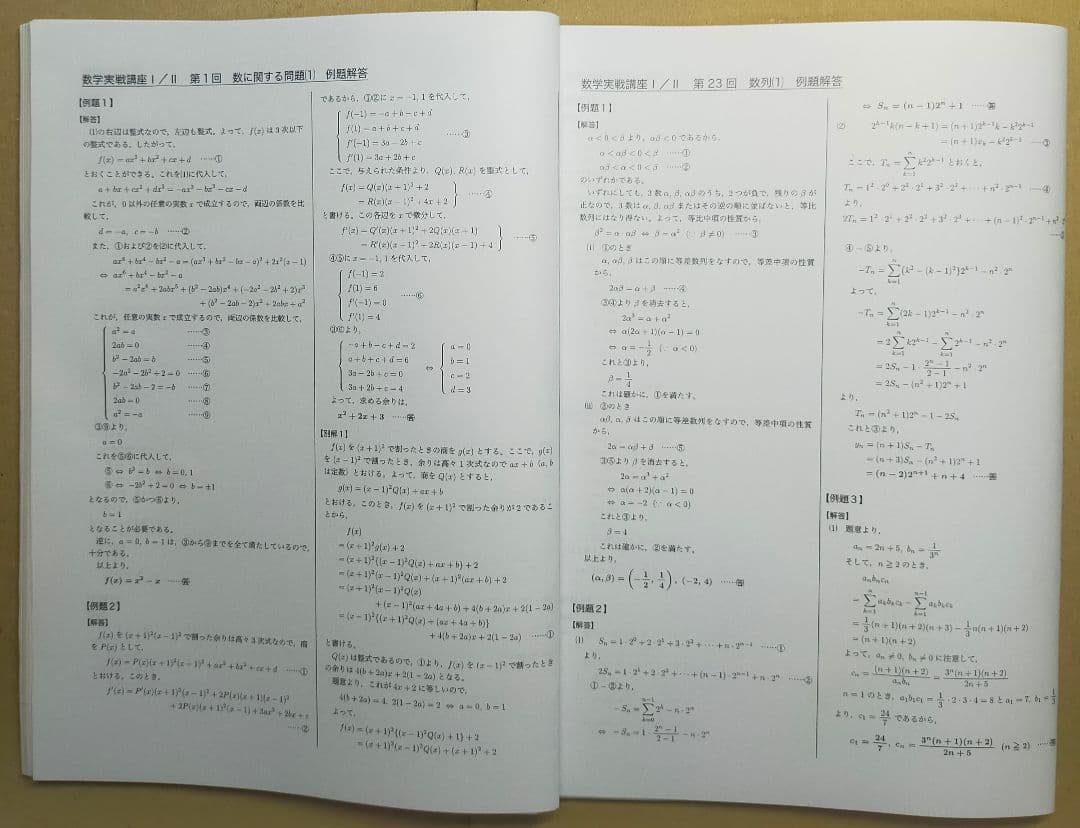 数学実戦講座Ⅰ/Ⅱ 第1回 数に関する問題(1) 例題解答
【例題1】
[解答]
(1)の右辺は整式なので,左辺も整式.よって,f(x)は3次以下
の整式である.したがって,
f(x)=ax³+bx²+cx+d ……①
とおくことができる.これを(1)に代入して,
a+bx+cx²+dx³=-ax³-bx²-cx-d
これが,0以外の任意の実数xで成立するので,両辺の係数を比
較して,
d=-a, c=-b ……②
また,①および②を(2)に代入して,
⇔ ax⁶+bx⁴-bx²-a
これが,任意の実数xで成立するので,両辺の係数を比較して,
a²=a ……③
2ab=0 ……④
b²-2ab=b ……⑤
-2a²-2b²+2=0 ……⑥
b²-2ab-2=-b ……⑦
2ab=0 ……⑧
a²=-a ……⑨
③⑨より,
a=0
これを⑤⑥に代入して,
⑤ ⇔ b²=b ⇔ b=0, 1
⑥ ⇔ -2b²+2=0 ⇔ b=±1
となるので,⑤かつ⑥より,
b=1
となることが必要である.
逆に,a=0, b=1は,③から⑨までを全て満たしているので,
十分である.
以上より,
f(x)=x²-x ……答
【例題2】
[解答]
f(x)を(x+1)²(x-1)²で割った余りは高々3次式なので,商
をP(x)として,
f(x)=P(x)(x+1)²(x-1)²+ax³+bx²+cx+d ……①
とおける.このとき,
f'(x)=P'(x)(x+1)²(x-1)²+2P(x)(x+1)(x-1)²
+2P(x)(x+1)²(x-1)+3ax²+2bx+c
……②
であるから,①②にx=-1, 1を代入して,
f(-1)=-a+b-c+d
f(1)=a+b+c+d
f'(-1)=3a-2b+c
f'(1)=3a+2b+c
……③
ここで,与えられた条件より,Q(x), R(x)を整式として,
f(x)=Q(x)(x+1)²+2
=R(x)(x-1)²+4x+2
……④
と書ける.この各辺をxで微分して,
f'(x)=Q'(x)(x+1)²+2Q(x)(x+1)
=R'(x)(x-1)²+2R(x)(x-1)+4
……⑤
④⑤にx=-1, 1を代入して,
f(-1)=2
f(1)=6
f'(-1)=0
f'(1)=4
……⑥
③⑥より,
-a+b-c+d=2
a+b+c+d=6
3a-2b+c=0
3a+2b+c=4
⇔
a=0
b=1
c=2
d=3
よって,求める余りは,
x²+2x+3 ……答
[別解1]
f(x)を(x+1)²で割ったときの商をg(x)とする.ここで,g(x)
を(x-1)²で割ったとき,余りは高々1次式なのでax+b (a, b
は定数)とおける.よって,商をQ(x)とすると,
g(x)=(x-1)²Q(x)+ax+b
とおける.このとき,f(x)を(x+1)²で割った余りが2であるこ
とから,
f(x)
=(x+1)²g(x)+2
=(x+1)²{(x-1)²Q(x)+ax+b}+2
=(x+1)²(x-1)²Q(x)+(x+1)²(ax+b)+2
=(x+1)²(x-1)²Q(x)
+(x-1)²(ax+4a+b)+4(b+2a)x+2(1-2a)
=(x-1)²{(x+1)²Q(x)+(ax+4a+b)}
+4(b+2a)x+2(1-2a) ……①
と書ける.
Q(x)は整式であるので,①より,f(x)を(x-1)²で割ったとき
の余りは4(b+2a)x+2(1-2a)となる.
題意より,これが4x+2に等しいので,
4(b+2a)=4, 2(1-2a)=2 ⇔ a=0, b=1
よって,
f(x)=(x+1)²{(x-1)²Q(x)+1}+2
=(x+1)²(x-1)²Q(x)+(x+1)²+2
数学実戦講座Ⅰ/Ⅱ 第23回 数列(1) 例題解答
【例題1】
[解答]
α<0<βより,αβ<0であるから,
α<αβ<0<β ……①
αβ<α<0<β ……②
のいずれかである.
いずれにしても,3数α, β, αβのうち,2つが負で,残りのβが
正なので,3数はα, β, αβまたはその逆の順に並ばないと,等比
数列にはなり得ない.よって,等比中項の性質から,
β²=α・αβ ⇔ β=α² (∵ β≠0) ……③
(i) ①のとき
α, αβ, βはこの順に等差数列をなすので,等差中項の性質
から,
2αβ=α+β ……④
③④よりβを消去すると,
2α³=α+α²
⇔ α(2α+1)(α-1)=0
⇔ α=-1/2 (∵ α<0)
これと③より,
β=1/4
これは確かに,①を満たす.
(ii) ②のとき
αβ, α, βはこの順に等差数列をなすので,等差中項の性質
から,
2α=αβ+β ……⑤
③⑤よりβを消去すると,
2α=α³+α²
⇔ α(α+2)(α-1)=0
⇔ α=-2 (∵ α<0)
これと③より,
β=4
これは確かに,②を満たす.
以上より,
(α, β)=(-1/2, 1/4), (-2, 4) ……答
【例題2】
[解答]
(1) Sₙ=1・2⁰+2・2¹+3・2²+…+n・2ⁿ⁻¹ ……①
より,
2Sₙ=1・2¹+2・2²+…+(n-1)・2ⁿ⁻¹+n・2ⁿ ……②
①-②より,
⇔ -Sₙ=1・(2ⁿ-1)/(2-1)-n・2ⁿ
⇔ Sₙ=(n-1)2ⁿ+1 ……答
(2) 2ᵏ⁻¹k(n-k+1)=(n+1)2ᵏ⁻¹k-k²2ᵏ⁻¹
……③
ここで,Tₙ=Σₖ₌₁ⁿ k²2ᵏ⁻¹ とおくと,
Tₙ=1²・2⁰+2²・2¹+3²・2²+…+n²・2ⁿ⁻¹ ……④
より,
2Tₙ=1²・2¹+2²・2²+3²・2³+…+(n-1)²・2ⁿ⁻¹+n²・2ⁿ
④-⑤より,
-Tₙ=Σₖ₌₁ⁿ{k²-(k-1)²}2ᵏ⁻¹-n²・2ⁿ
よって,
-Tₙ=Σₖ₌₁ⁿ(2k-1)2ᵏ⁻¹-n²・2ⁿ
=2Σₖ₌₁ⁿ k2ᵏ⁻¹-Σₖ₌₁ⁿ 2ᵏ⁻¹-n²・2ⁿ
=2Sₙ-1・(2ⁿ-1)/(2-1)-n²・2ⁿ
=2Sₙ-(n²+1)2ⁿ+1
より,
Tₙ=(n²+1)2ⁿ-1-2Sₙ
これと③より,
=(n+1)Sₙ-Tₙ
=(n+3)Sₙ-(n²+1)2ⁿ+1
=(n-2)2ⁿ⁺¹+n+4 ……答
【例題3】
[解答]
(1) 題意より,
aₙ=2n+5, bₙ=1/3ⁿ
そして,n≧2のとき,
aₙbₙcₙ
=Σₖ₌₁ⁿ aₖbₖcₖ-Σₖ₌₁ⁿ⁻¹ aₖbₖcₖ
=1/3 n(n+1)(n+2)(n+3)-1/3(n-1)n(n+1)(n+2)
よって,aₙ≠0, bₙ≠0に注意して,
n=1のとき,a₁b₁c₁=1/3・2・3・4=8とa₁=7, b₁=1/3
より,c₁=24/7であるから,
c₁=24/7, cₙ=3ⁿ(n+1)(n+2)/(2n+5) (n≧2) ……答